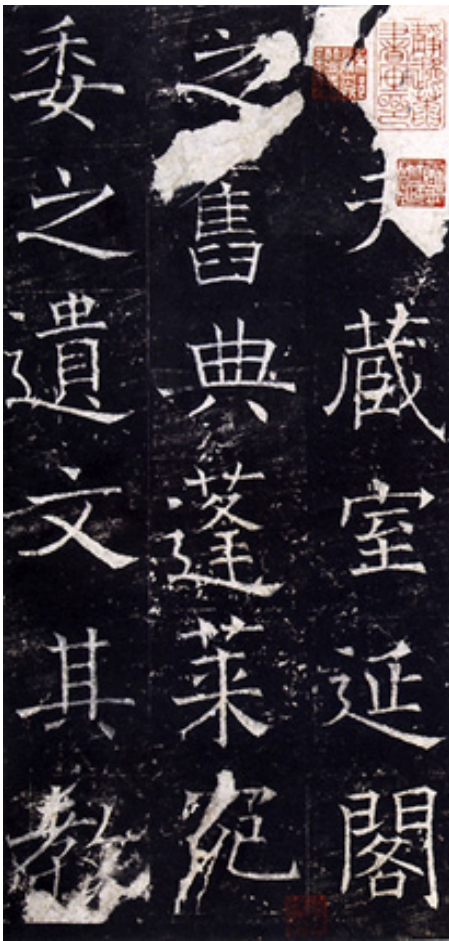 夫蔵室延閣
之舊典蓬莱宛
委之遺文其教